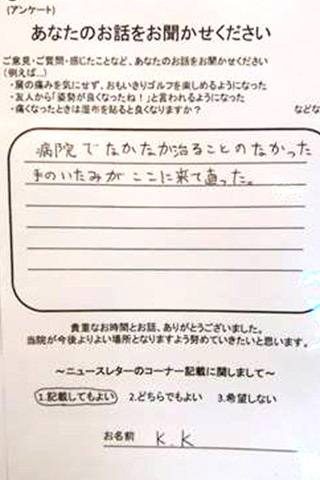 (アンケート)
あなたのお話をお聞かせください
ご意見・ご質問・感じたことなど、あなたのお話をお聞かせください
(例えば…)
・肩の痛みを気にせず、おもいきりゴルフを楽しめるようになった
・友人から「姿勢が良くなったね!」と言われるようになった
・痛くなったときは湿布を貼ると良くなりますか? などな
病院でなかなか治ることのなかった
手のいたみがここに来て直った。
貴重なお時間とお話、ありがとうございました。
当院が今後よりよい場所となりますよう努めていきたいと思います。
～ニュースレターのコーナー記載に関しまして～
1.記載してもよい 2.どちらでもよい 3.希望しない
お名前 K.K